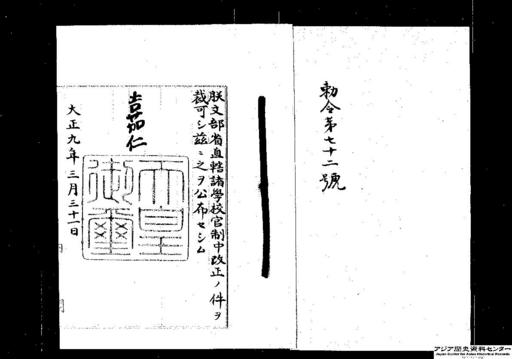 勅令第七十二號
朕文部省直轄諸學校官制中改正ノ件ヲ
裁可シ玆ニ之ヲ公布セシム
嘉仁
天皇
御璽
大正九年三月三十一日
アジア歴史資料センター
Japan Center for Asian Historical Records